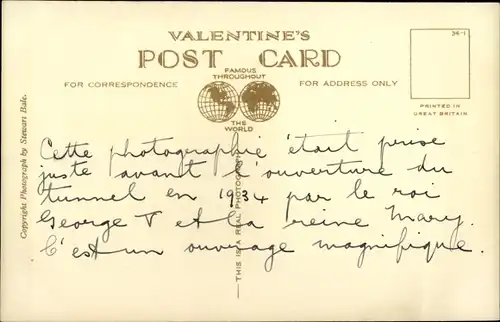 VALENTINE'S
POST CARD
FAMOUS
THROUGHOUT
THE
WORLD
FOR CORRESPONDENCE
FOR ADDRESS ONLY
36-1
PRINTED IN
GREAT BRITAIN
Copyright Photograph by Stewart Bale.
THIS IS A REAL PHOTOGRAPH
Cette photographie était prise
juste avant l'ouverture du
tunnel en 1934 par le roi
George V et la reine Mary.
C'est un ouvrage magnifique.